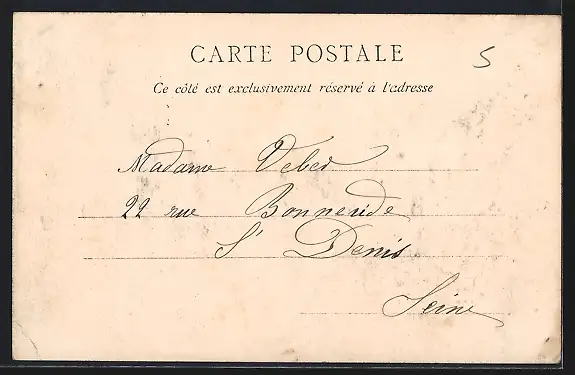 CARTE POSTALE
5
Ce côté est exclusivement réservé à l'adresse
Madame Veber
22 rue Bonnevide
St Denis
Seine